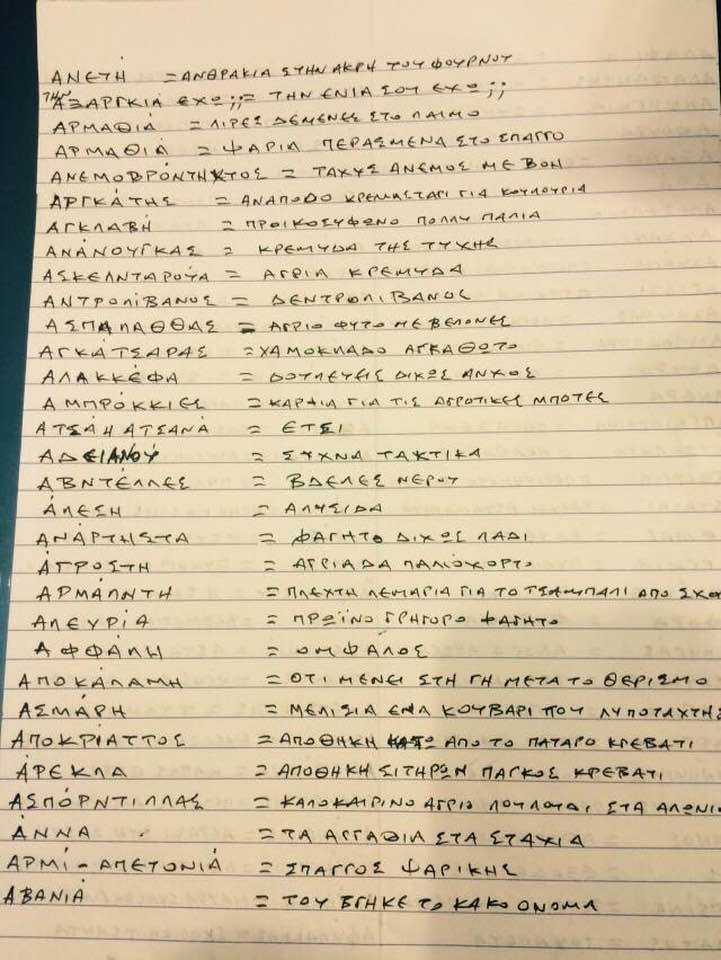 ΑΝΕΤΗ = ΑΝΘΡΑΚΙΑ ΣΤΗΝ ΑΚΡΗ ΤΟΥ ΦΟΥΡΝΟΥ
ΤΗΝ ΑΞΑΡΓΚΙΑ ΕΧΩ ;; = ΤΗΝ ΕΝΙΑ ΣΟΥ ΕΧΩ ;;
ΑΡΜΑΘΙΆ = ΛΙΡΕΣ ΔΕΜΕΝΕΣ ΣΤΟ ΛΑΙΜΟ
ΑΡΜΑΘΙΆ = ΨΑΡΙΑ ΠΕΡΑΣΜΕΝΑ ΣΤΟ ΣΠΑΓΓΟ
ΑΝΕΜΟΒΡΌΝΤΗΧΤΟΣ = ΤΑΧΥΣ ΑΝΕΜΟΣ ΜΕ ΒΟΗ
ΑΡΓΚΆΤΗΣ = ΑΝΑΠΟΔΟ ΚΡΕΜΑΣΤΑΡΙ ΓΙΑ ΚΟΥΛΟΥΡΙΑ
ΑΓΚΛΑΒΉ = ΠΡΟΙΚΟΣΥΦΩΝΟ ΠΟΛΛΥ ΠΑΛΙΑ
ΑΝΆΝΟΥΓΚΑΣ = ΚΡΕΜΥΔΑ ΤΗΣ ΤΥΧΗΣ
ΑΣΚΕΛΝΤΑΡΟΎΑ = ΑΓΡΙΑ ΚΡΕΜΥΔΑ
ΑΝΤΡΟΛΊΒΑΝΟΣ = ΔΕΝΤΡΩΛΙΒΑΝΟΣ
ΑΣΠΆΛΑΘΘΑΣ = ΑΓΡΙΟ ΦΥΤΟ ΜΕ ΒΕΛΟΝΕΣ
ΑΓΚΆΤΣΑΡΑΣ = ΧΑΜΟΚΛΑΔΟ ΑΓΚΑΘΩΤΟ
ΑΛΑΚΚΈΦΑ = ΔΟΥΛΕΥΕΙΣ ΔΙΧΩΣ ΑΝΧΟΣ
ΑΜΠΡΌΚΚΙΕΣ = ΚΑΡΦΙΑ ΓΙΑ ΤΙΣ ΑΓΡΟΤΙΚΕΣ ΜΠΟΤΕΣ
ΑΤΣΆ Η ΑΤΣΑΝΆ = ΕΤΣΙ
ΑΔΕΙΑΝΟΎ = ΣΥΧΝΑ ΤΑΚΤΙΚΑ
ΑΒΝΤΈΛΛΕΣ = ΒΔΕΛΕΣ ΝΕΡΟΥ
ΆΛΕΣΗ = ΑΛΥΣΙΔΑ
ΑΝΆΡΤΗΣΤΑ = ΦΑΓΗΤΟ ΔΙΧΩΣ ΛΑΔΙ
ΆΓΡΟΣΤΗ = ΑΓΡΙΑΔΑ ΠΑΛΙΟΧΟΡΤΟ
ΑΡΜΆΛΝΤΗ = ΠΛΕΧΤΗ ΛΕΜΑΡΓΙΑ ΓΙΑ ΤΟ ΤΣΑΜΠΑΛΙ ΑΠΟ ΣΧΟΙ
ΑΛΕΥΡΊΑ = ΠΡΩΪΝΟ ΓΡΗΓΟΡΟ ΦΑΓΗΤΟ
ΑΦΦΆΛΗ = ΟΜΦΑΛΟΣ
ΑΠΟΚΆΛΑΜΗ = ΟΤΙ ΜΕΝΕΙ ΣΤΗ ΓΗ ΜΕΤΑ ΤΟ ΘΕΡΙΣΜΟ
ΑΣΜΆΡΗ = ΜΕΛΙΣΙΑ ΕΝΑ ΚΟΥΒΑΡΙ ΠΟΥ ΛΥΠΟΤΑΧΤΗΣ
ΑΠΟΚΡΊΑΤΤΟΣ = ΑΠΟΘΗΚΗ ΑΠΟ ΤΟ ΠΑΤΑΡΟ ΚΡΕΒΑΤΙ
ΆΡΕΚΛΑ = ΑΠΟΘΗΚΗ ΣΙΤΗΡΩΝ ΠΑΓΚΟΣ ΚΡΕΒΑΤΙ
ΑΣΠΌΡΝΤΙΛΛΑΣ = ΚΑΛΟΚΑΙΡΙΝΟ ΑΓΡΙΟ ΛΟΥΛΟΥΔΙ ΣΤΑ ΑΛΩΝΙΑ
ΆΝΝΑ = ΤΑ ΑΓΓΑΘΙΑ ΣΤΑ ΣΤΑΧΙΑ
ΑΡΜΊ - ΑΠΕΤΟΝΙΆ = ΣΠΑΓΓΟΣ ΨΑΡΙΚΗΣ
ΑΒΑΝΙΆ = ΤΟΥ ΒΓΗΚΕ ΤΟ ΚΑΚΟ ΟΝΟΜΑ